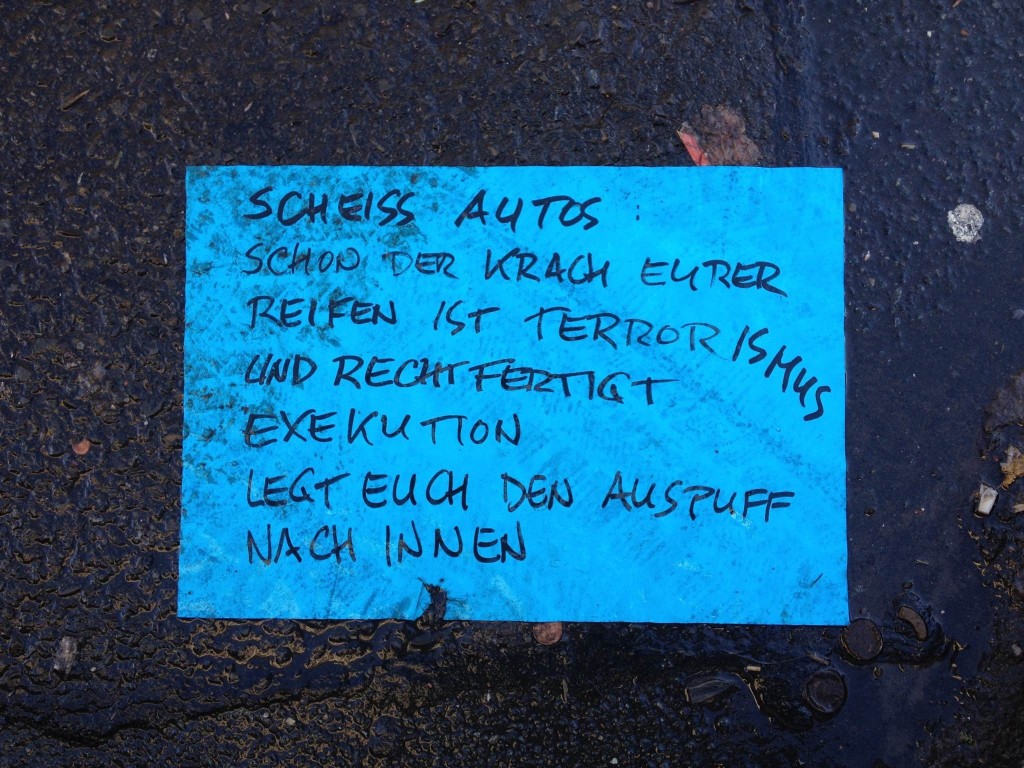 SCHEISS AUTOS :
SCHON DER KRACH EURER
REIFEN IST TERRORISMUS
UND RECHTFERTIGT
EXEKUTION
LEGT EUCH DEN AUSPUFF
NACH INNEN